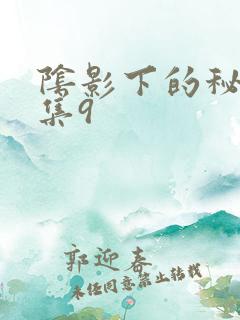 阴影下的秘
集9
郭迎春
未经同意禁止转载